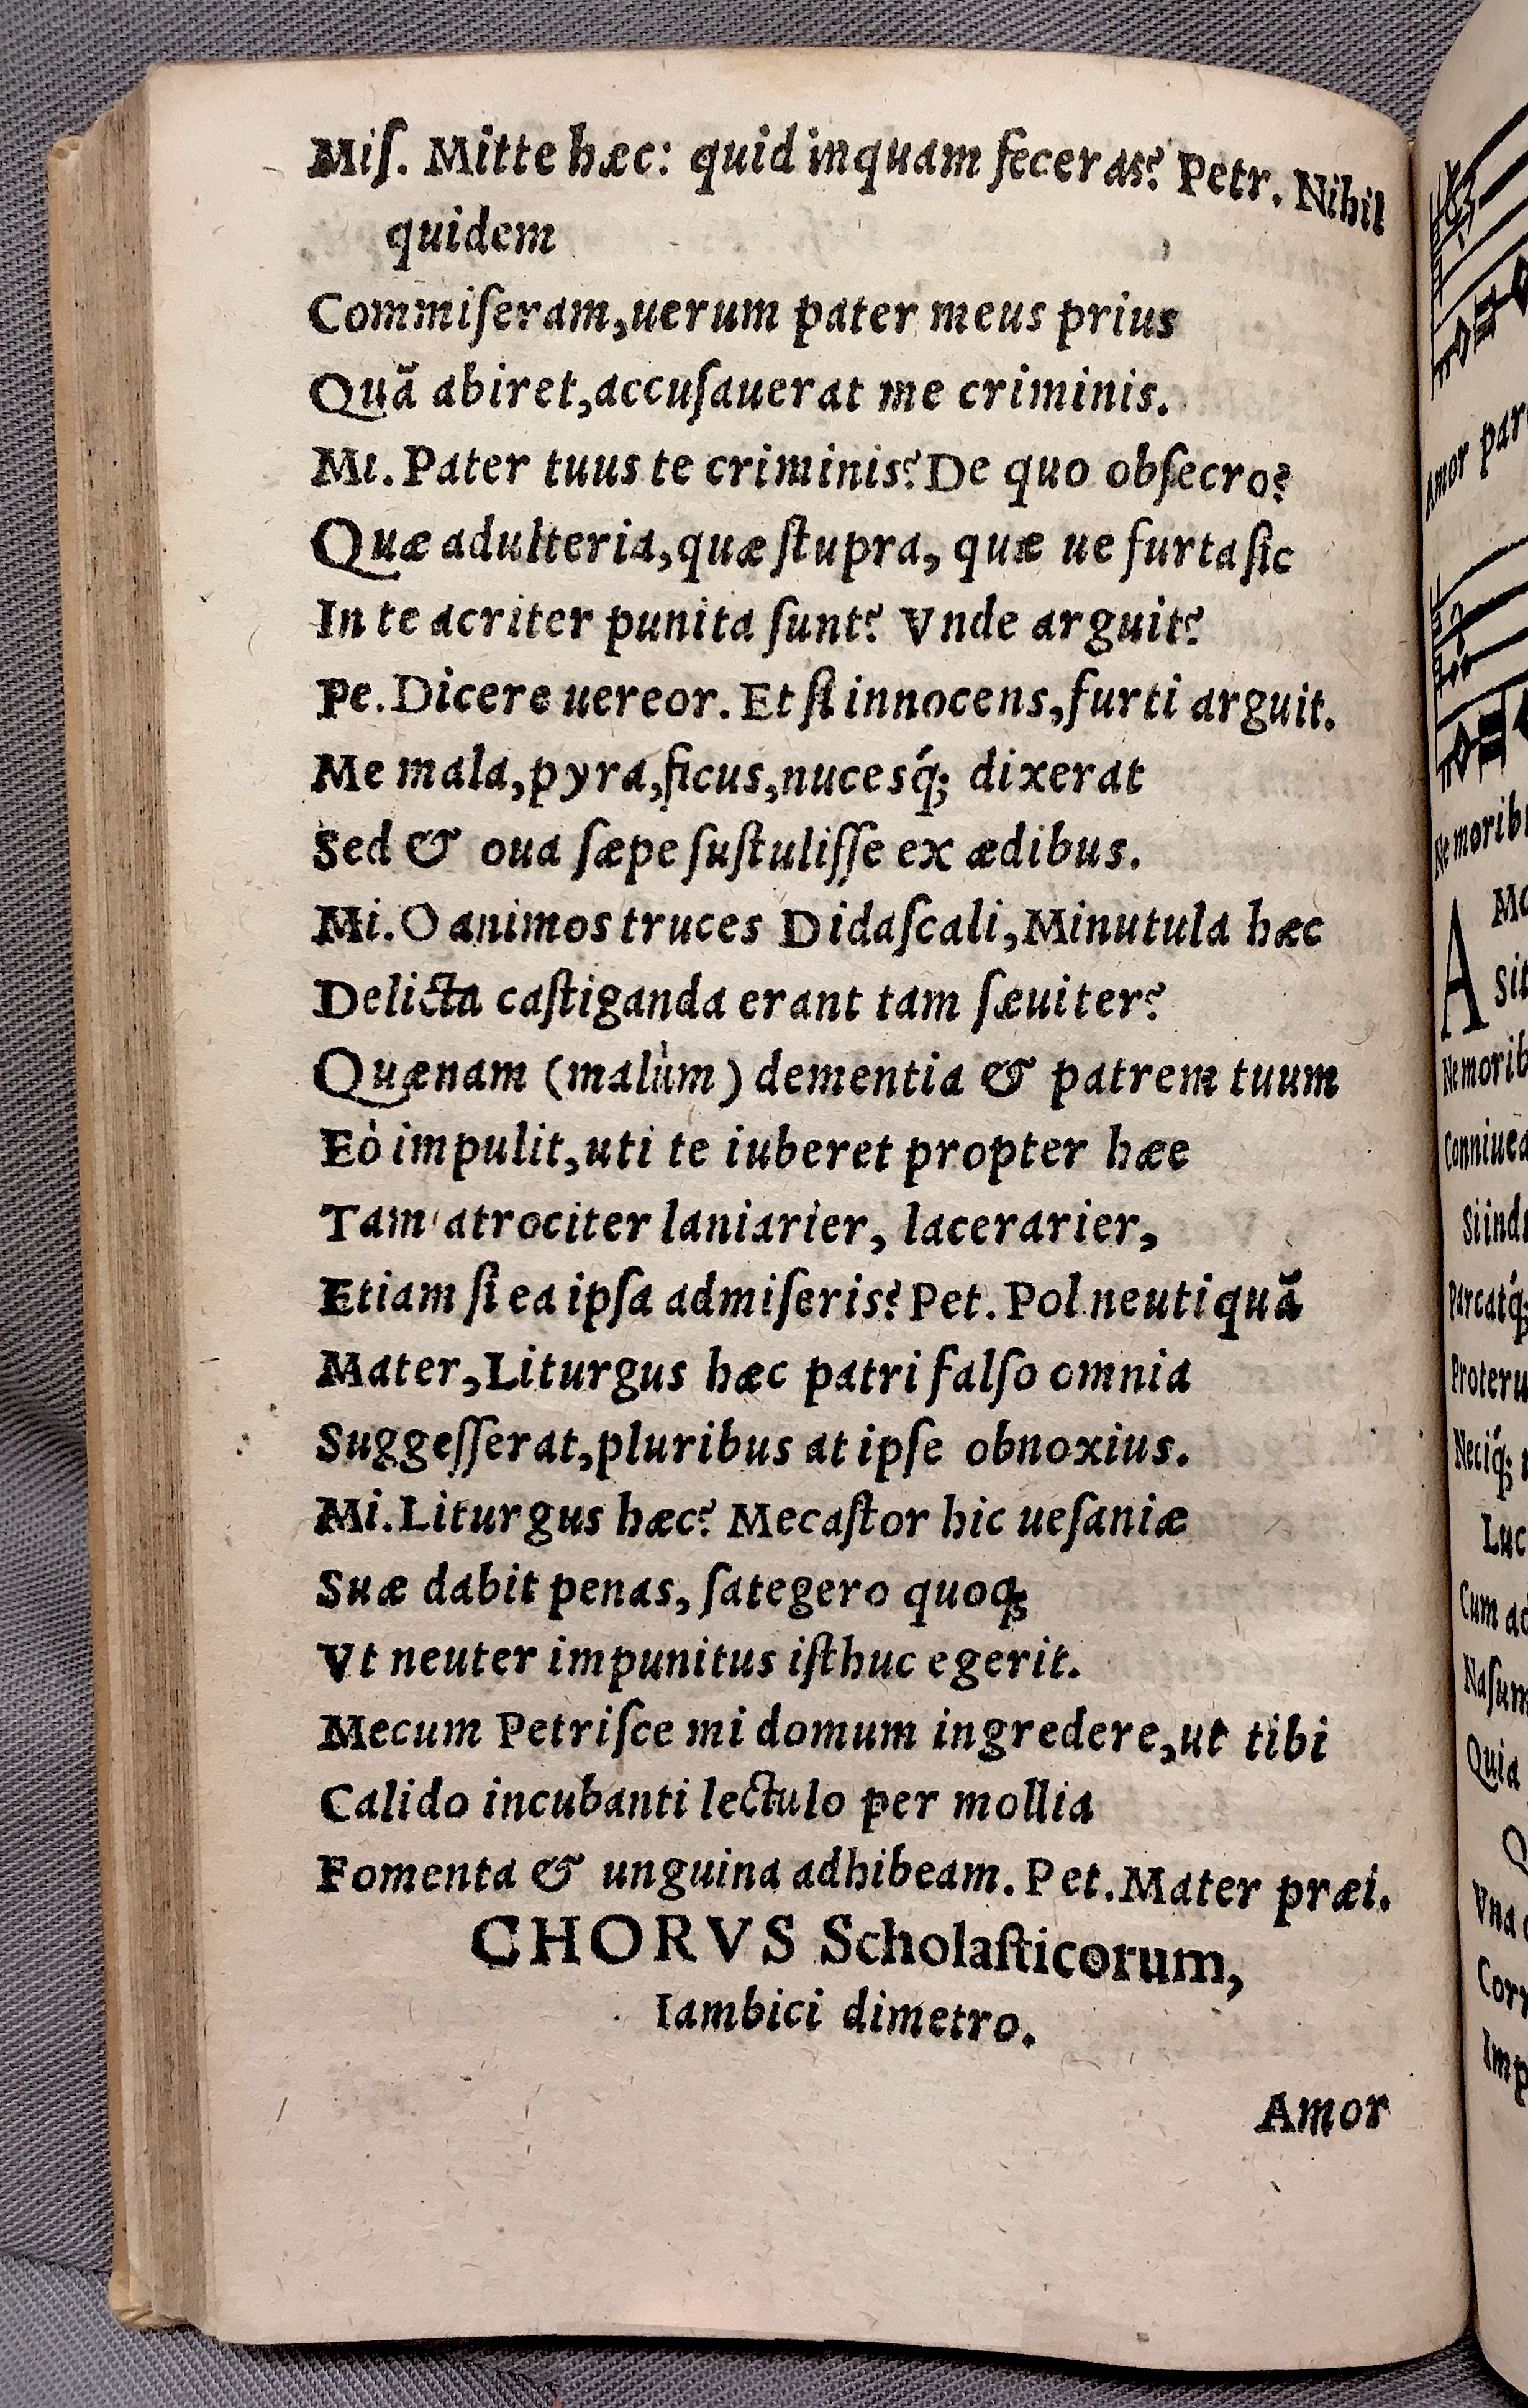 Miſ. Mitte hæc: quid inquam feceras? Petr. Nihil
quidem
Commiſeram,uerum pater meus prius
Quã abiret,accuſauerat me criminis.
Mi. Pater tuus te criminis? De quo obſecro?
Quæ adulteria,quæ ſtupra, quæ ue furta ſic
In te acriter punita ſunt? Vnde arguit?
Pe. Dicere uereor. Et ſi innocens,furti arguit.
Me mala,pyra,ficus,nucesq́; dixerat
Sed & oua ſæpe ſuſtuliſſe ex ædibus.
Mi. O animos truces Didaſcali,Minutula hæc
Delicta caſtiganda erant tam ſæuiter?
Quænam (malùm) dementia & patrem tuum
Eò impulit,uti te iuberet propter hæe
Tam atrociter laniarier, lacerarier,
Etiam ſi ea ipſa admiſeris? Pet. Pol neutiquã
Mater,Liturgus hæc patri falſo omnia
Suggeſſerat,pluribus at ipſe obnoxius.
Mi. Liturgus hæc? Mecaſtor hic ueſaniæ
Suæ dabit penas, ſategero quoq;
Vt neuter impunitus iſthuc egerit.
Mecum Petriſce mi domum ingredere,ut tibi
Calido incubanti lectulo per mollia
Fomenta & unguina adhibeam. Pet. Mater præi.
CHORVS Scholaſticorum,
Iambici dimetro.
Amor
Amor par
Ne moribu
A
Mo
sit
Ne morib
Conniuea
Si ind
Parcatq́;
Proteru
Neciq́;
Luc
Cum ad
Naſum
Quia
Q
Vna
Corr
Imp